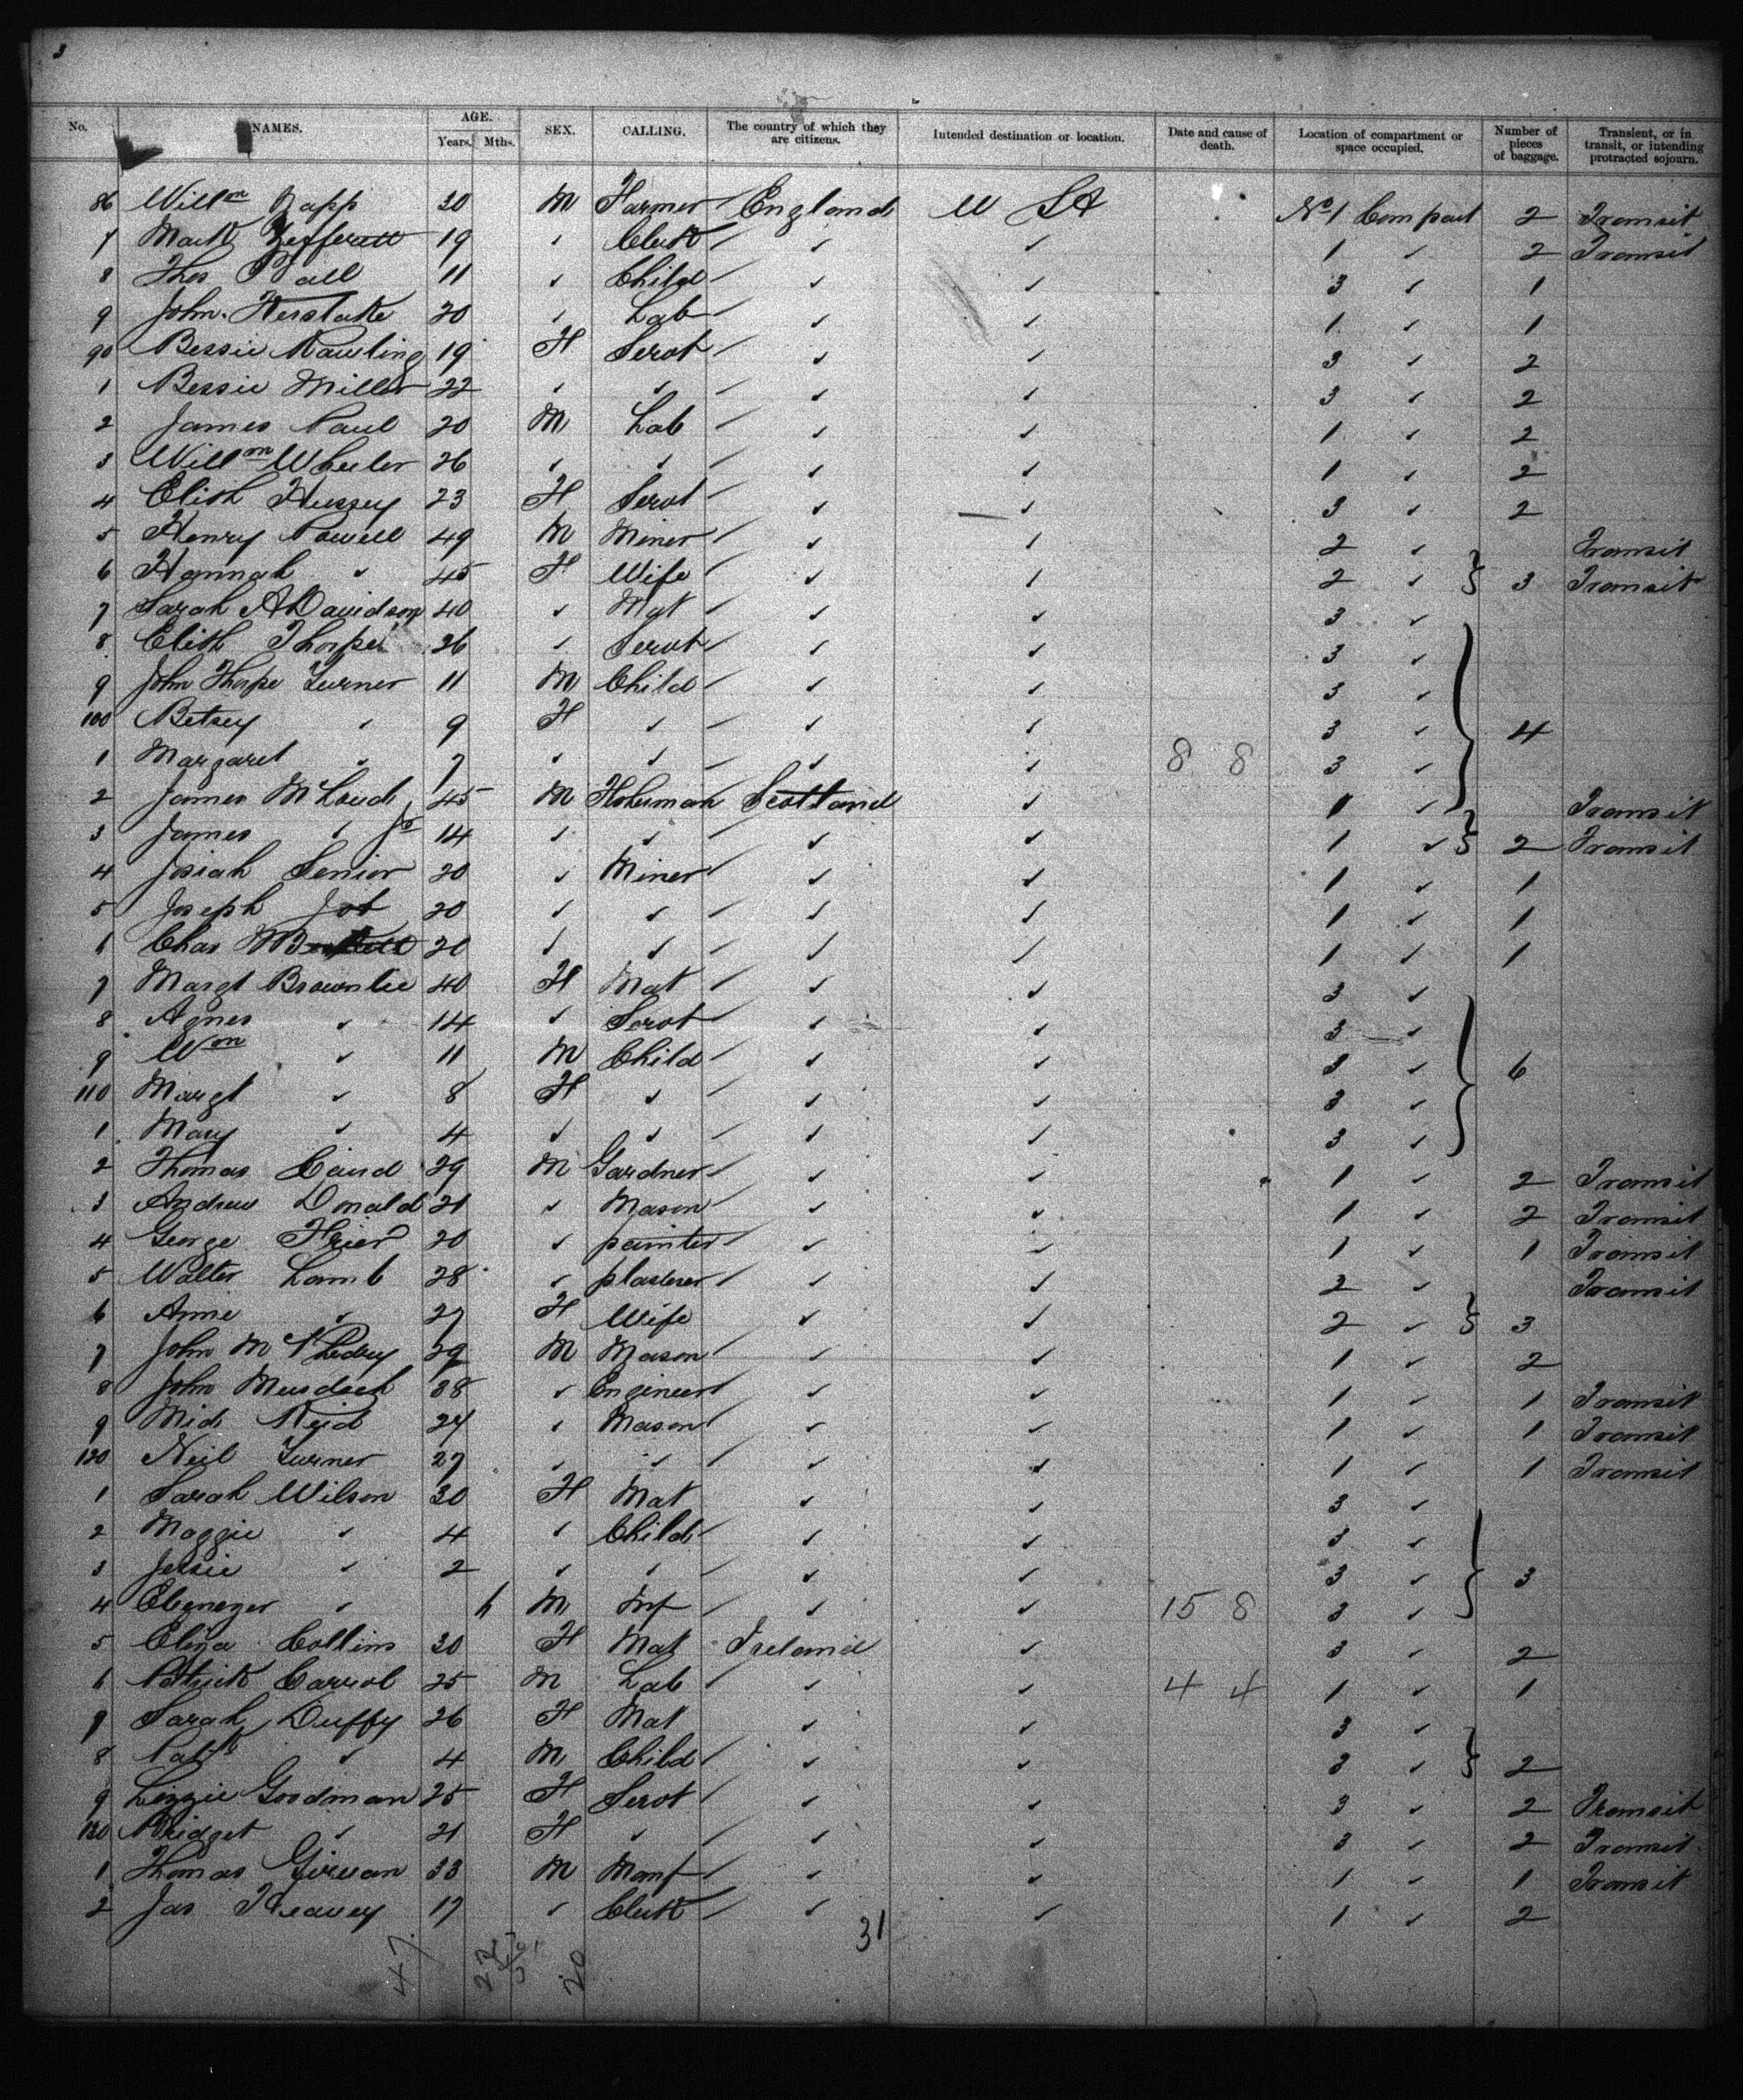 3
No. NAMES. AGE. Years. Mths. SEX. CALLING. The country of which they are citizens. Intended destination or location. Date and cause of death. Location of compartment or space occupied. Number of pieces of baggage. Transient, or in transit, or intending protracted sojourn.
86 Willm 30 M Farmer England U St No 1 Compart 2 Transit
7 Mark 19 " Clerk " " 1 " 2 Transit
8 Thos Ball 11 " Child " " 3 " 1
9 John 20 " Lab " " 1 " 1
90 Bessie Rawling 19 F Servt " " 3 " 2
1 Bessie Miller 22 " " " " 3 " 2
2 James Paul 20 M Lab " " 1 " 2
3 Willm Wheeler 26 " " " " 1 " 2
4 Elizh Hussey 23 F Servt " " 3 " 2
5 Henry Powell 49 M Miner " " 2 " Transit
6 Hannah " 45 F Wife " " 2 " 3 Transit
7 Sarah A Davidson 40 " Mat " " 3 "
8 Elizh Thorpe 26 " Servt " " 3 "
9 John Thorpe Turner 11 M Child " " 3 "
100 Betsey " 9 F " " " 3 " 4
1 Margaret " 7 " " " " 8 8 3 "
2 James McLoud 45 M Fisherman Scotland " 1 " Transit
3 James " Jr 14 " " " " 1 " 2 Transit
4 Josiah Senior 20 " Miner " " 1 " 1
5 Joseph Job 20 " " " " 1 " 1
6 Chas 20 " " " " 1 " 1
7 Margt Brownlie 40 F Mat " " 3 "
8 Agnes " 14 " Servt " " 3 "
9 Wm " 11 M Child " " 3 " 6
110 Margt " 8 F " " " 3 "
1 Mary " 4 " " " " 3 "
2 Thomas Caird 29 M Gardner " " 1 " 2 Transit
3 Andrew Donald 21 " Mason " " 1 " 2 Transit
4 George Frier 20 " painter " " 1 " 1 Transit
5 Walter Lamb 28 " plasterer " " 2 " Transit
6 Annie " 27 F Wife " " 2 " 3
7 John 29 M Mason " " 1 " 2
8 John Murdoch 38 " Engineer " " 1 " 1 Transit
9 Reid 24 " Mason " " 1 " 1 Transit
120 Neil Turner 27 " " " " 1 " 1 Transit
1 Sarah Wilson 30 F Mat " " 3 "
2 Maggie " 4 " Child " " 3 "
3 Jessie " 2 " " " " 3 " 3
4 Ebenezer " M Inf " " 15 8 3 "
5 Eliza Collins 30 F Mat Ireland " 3 " 2
6 Patrick Carrol 25 M Lab " " 4 4 1 " 1
7 Sarah Duffy 26 F Mat " " 3 "
8 Patk " 4 M Child " " 3 " 2
9 Lizzie Goodman 25 F Servt " " 3 " 2 Transit
130 Bridget " 21 F " " " 3 " 2 Transit
1 Thomas Girvan 33 M Manf " " 1 " 1 Transit
2 Jas Heavey 17 " Clerk " " 1 " 2
31
47 20